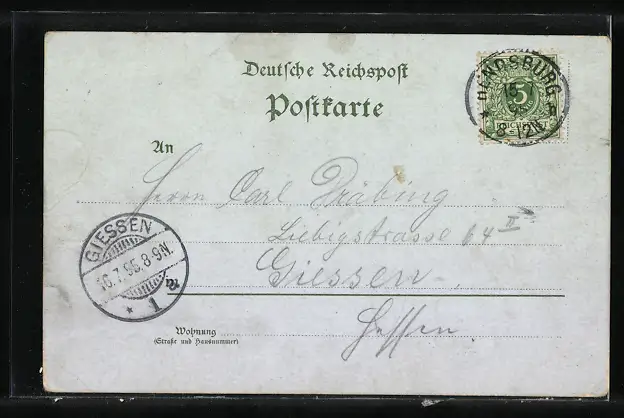 Deutsche Reichspost
Postkarte
5
8-12N
An
Herrn Carl Dräbing
Liebigstrasse 64 II
Giessen
Hessen
GIESSEN
16.7.95.8-9N.
* 1
Wohnung
(Straße und Hausnummer)